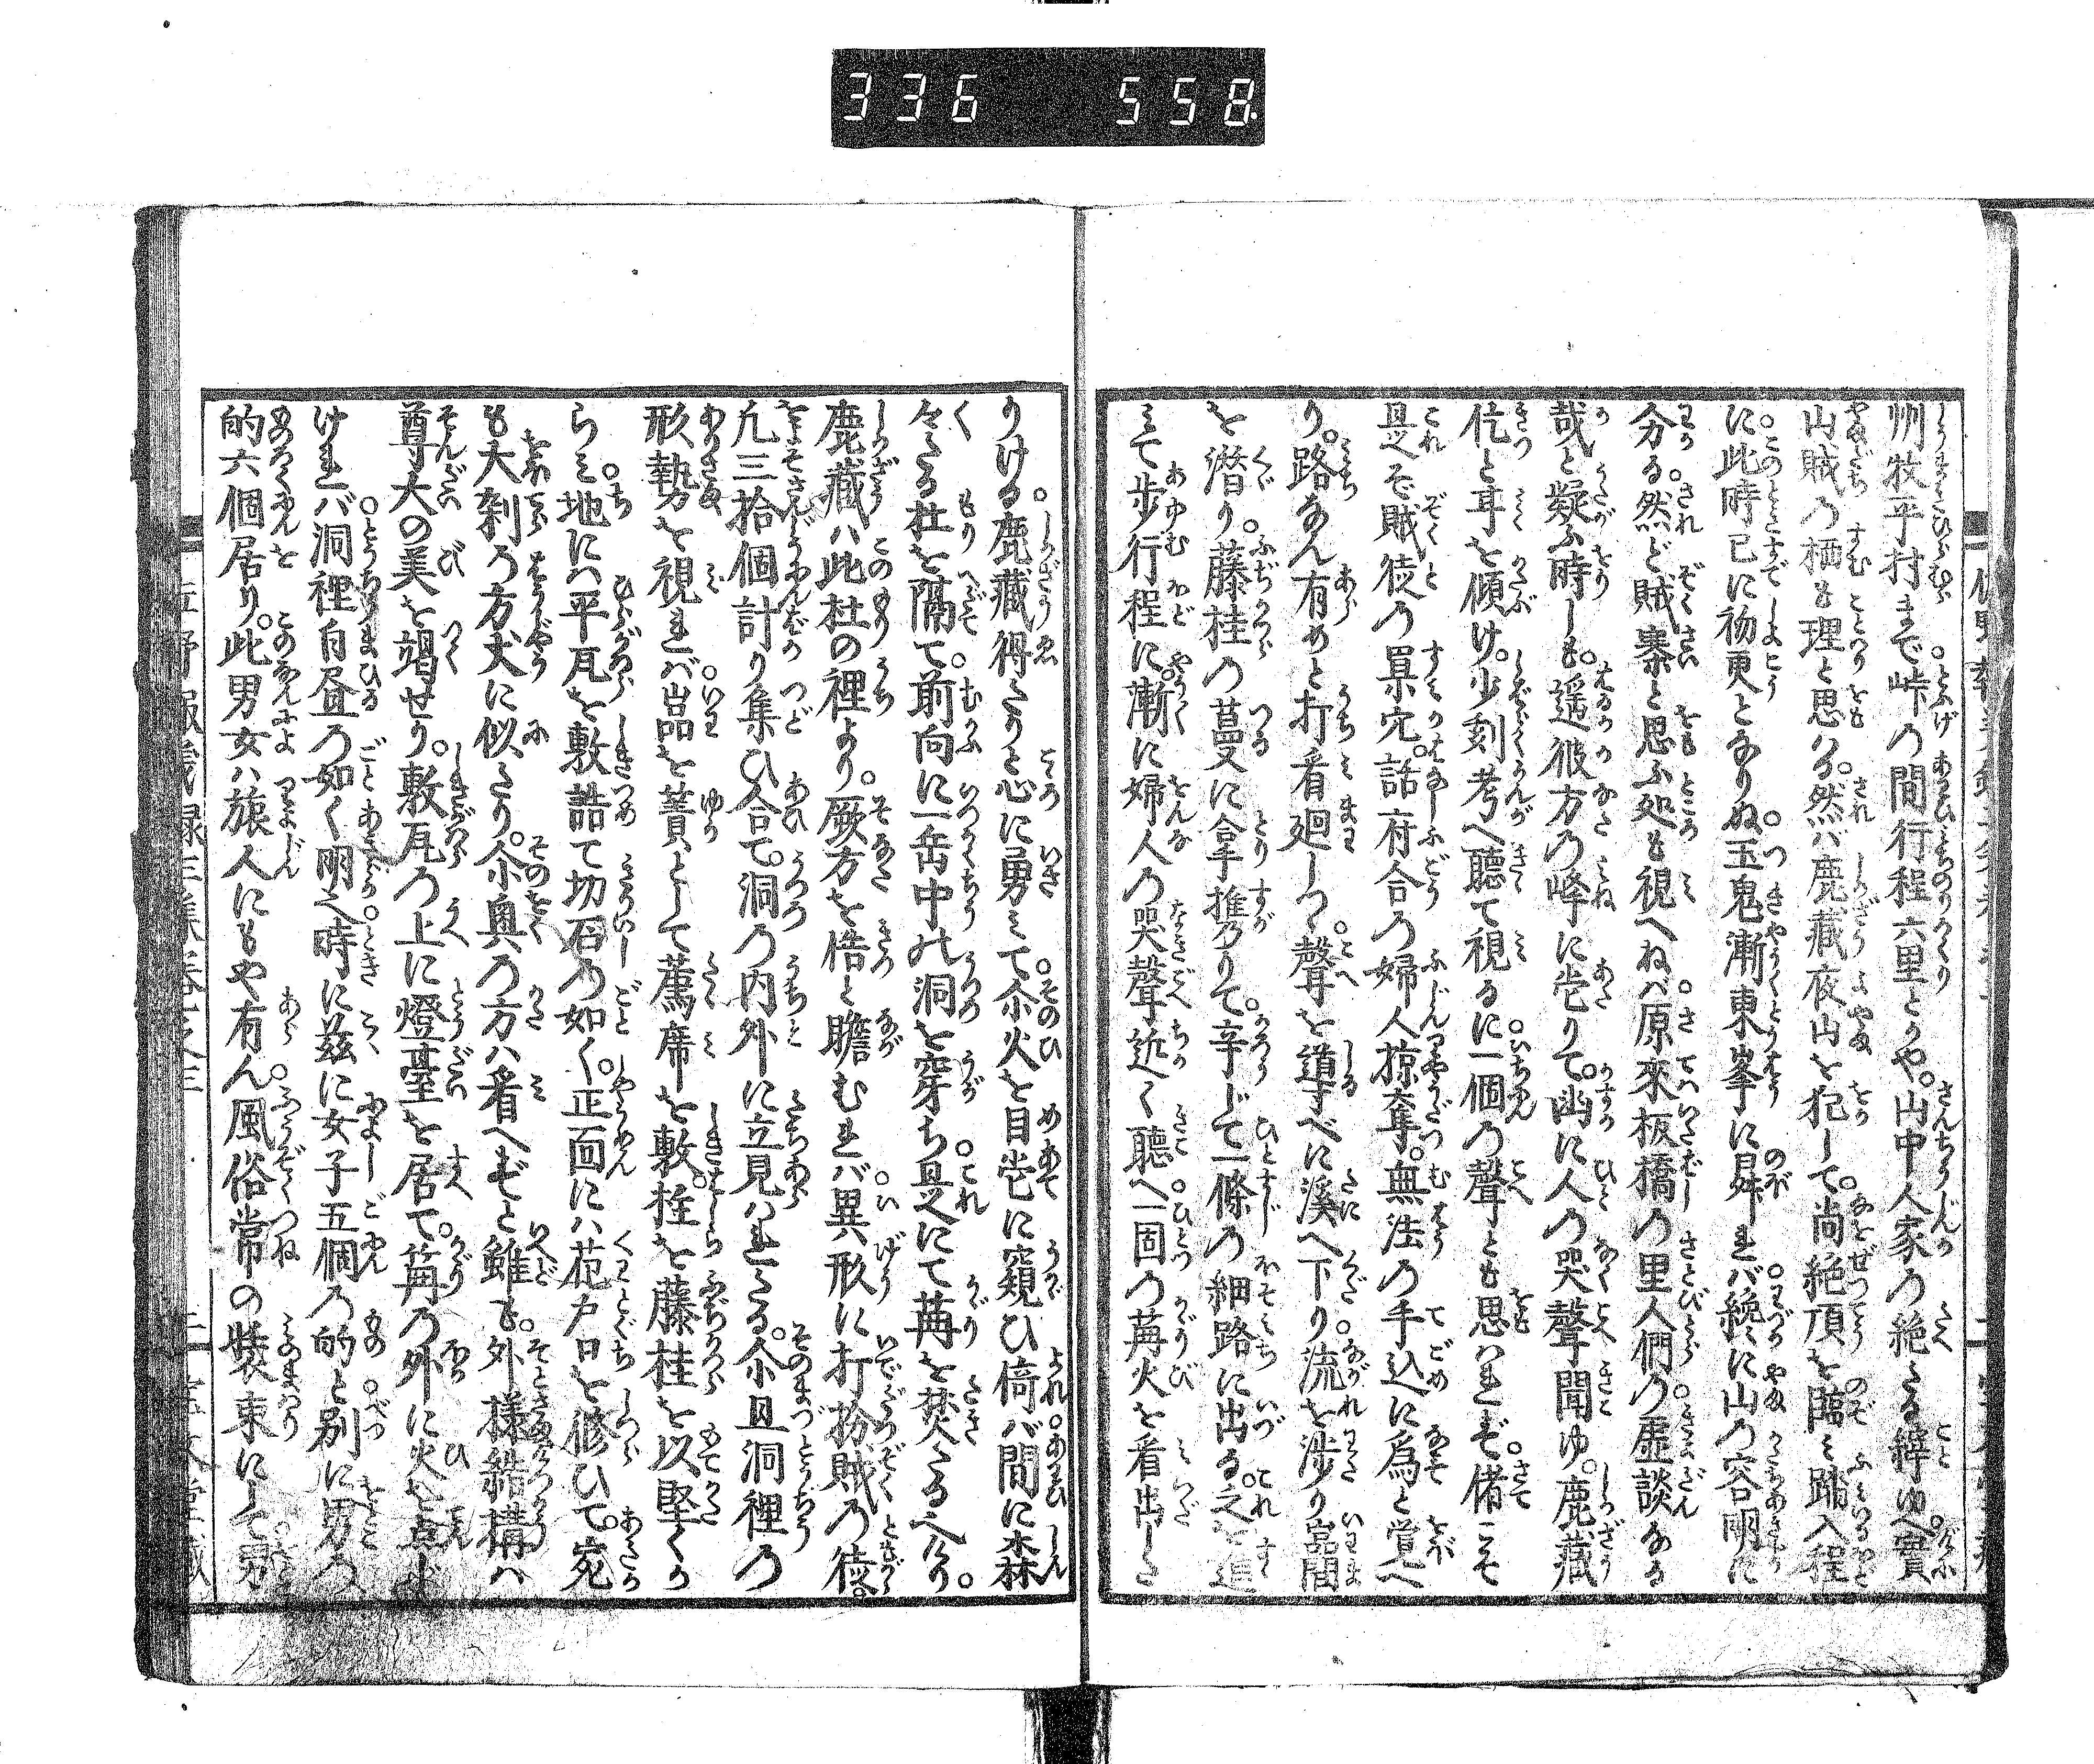 336 558
州牧平村まで峠の間行程六里とかや。山中人家の絶たる縡ゆへ。實
山賊の栖も理と思はる。然バ鹿藏夜山を犯して。尚絶頂を臨ミ踏入程
に。此時已に初更となりぬ。玉兎漸東峯に昇れバ。纔に山の容明に
分る。然ど賊寨と思ふ処も視へねバ。原來板橋の里人們の虚談なる
哉と疑ふ時しも。遥彼方の峰に当りて。幽に人の哭聲聞ゆ。鹿藏
佶と耳を傾け。少刻考へ聽て視るに。一個の聲とも思はれず。偖こそ
是ぞ賊徒の巣穴。話府合の婦人掠奪。無法の手込に為と覚へ
り。路なん有めと打看廻しつ。聲を導べに溪へ下り。流を渉り岩間
を潜り。藤桂の蔓に合手攀りて。辛じて一條の細路に出る。之を進
ミて歩行程に。漸に婦人の哭聲近く聽へ。一固の篝火を看出した
りける。鹿藏得たりと心に勇ミて。尓火を目当に窺ひ倚バ。間に森
々たる杜を隔て。前向に一岳中の洞を穿ち。是にて篝を焚たるへり。
鹿藏ハ此杜の裡より。厥方を倍と瞻むれバ。異形に打扮賊の徒。
凡三拾個計り集ひ合て。洞の内外に立見ハれたる。尓且洞裡の
形勢を視れバ。岩を簀として薦席を敷。柱を藤桂を以堅くか
らミ。地にハ平瓦を敷詰て切石の如く。正面にハ苑戸口を修ひて。宛
も大刹の方丈に似たり。尓奥の方ハ看へずと雖も。外様結構ハ
尊大の美を竭せり。敷瓦の上に燈臺を居て。篝の外に火を点じ
けれバ。洞裡白昼の如く明へ。時に茲に女子五個の的と。別に男の
的六個居り。此男女ハ旅人にもや有ん。風俗常の裝束にして。男